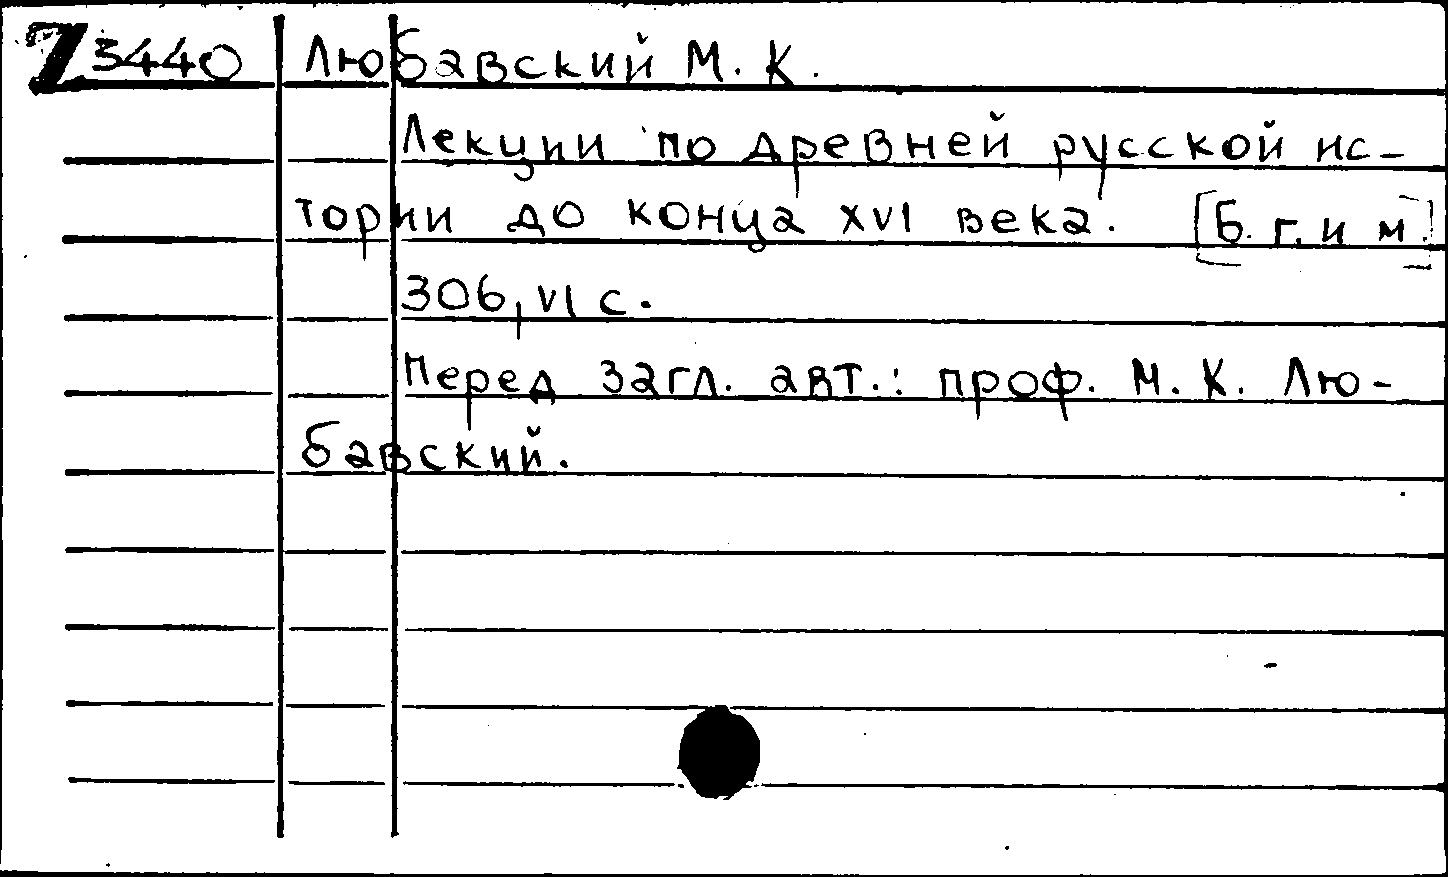 Z 3440 Любавский М. К.
Лекции по древней русской ис-
тории до конца XVI века. [Б. г. и м.]
306, VI с.
Перед загл. авт.: проф. М. К. Лю-
бавский.